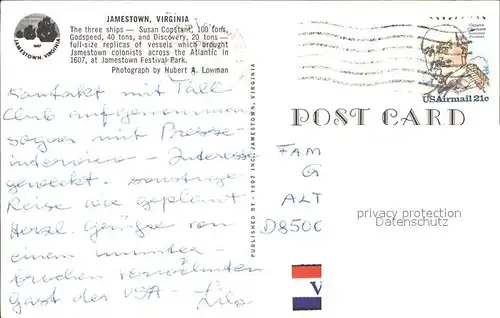 JAMESTOWN, VIRGINIA
The three ships — Susan Constant, 100 tons,
Godspeed, 40 tons, and Discovery, 20 tons —
full-size replicas of vessels which brought
Jamestown colonists across the Atlantic in
1607, at Jamestown Festival Park.
Photograph by Hubert A. Lowman
1607
JAMESTOWN, VIRGINIA
Kontakt mit Tall
Club aufgenommen
sogar mit Presse-
interview - Interesse
geweckt. sonstige
Reise wie geplant
Herzl. Grüße von
einem ununter-
brochen verwöhnten
Gast der USA -
PUBLISHED BY - 1607 INC., JAMESTOWN, VIRGINIA
USAirmail 21c
POST CARD
FAM
G
ALT
D8506
privacy protection
watermark
V